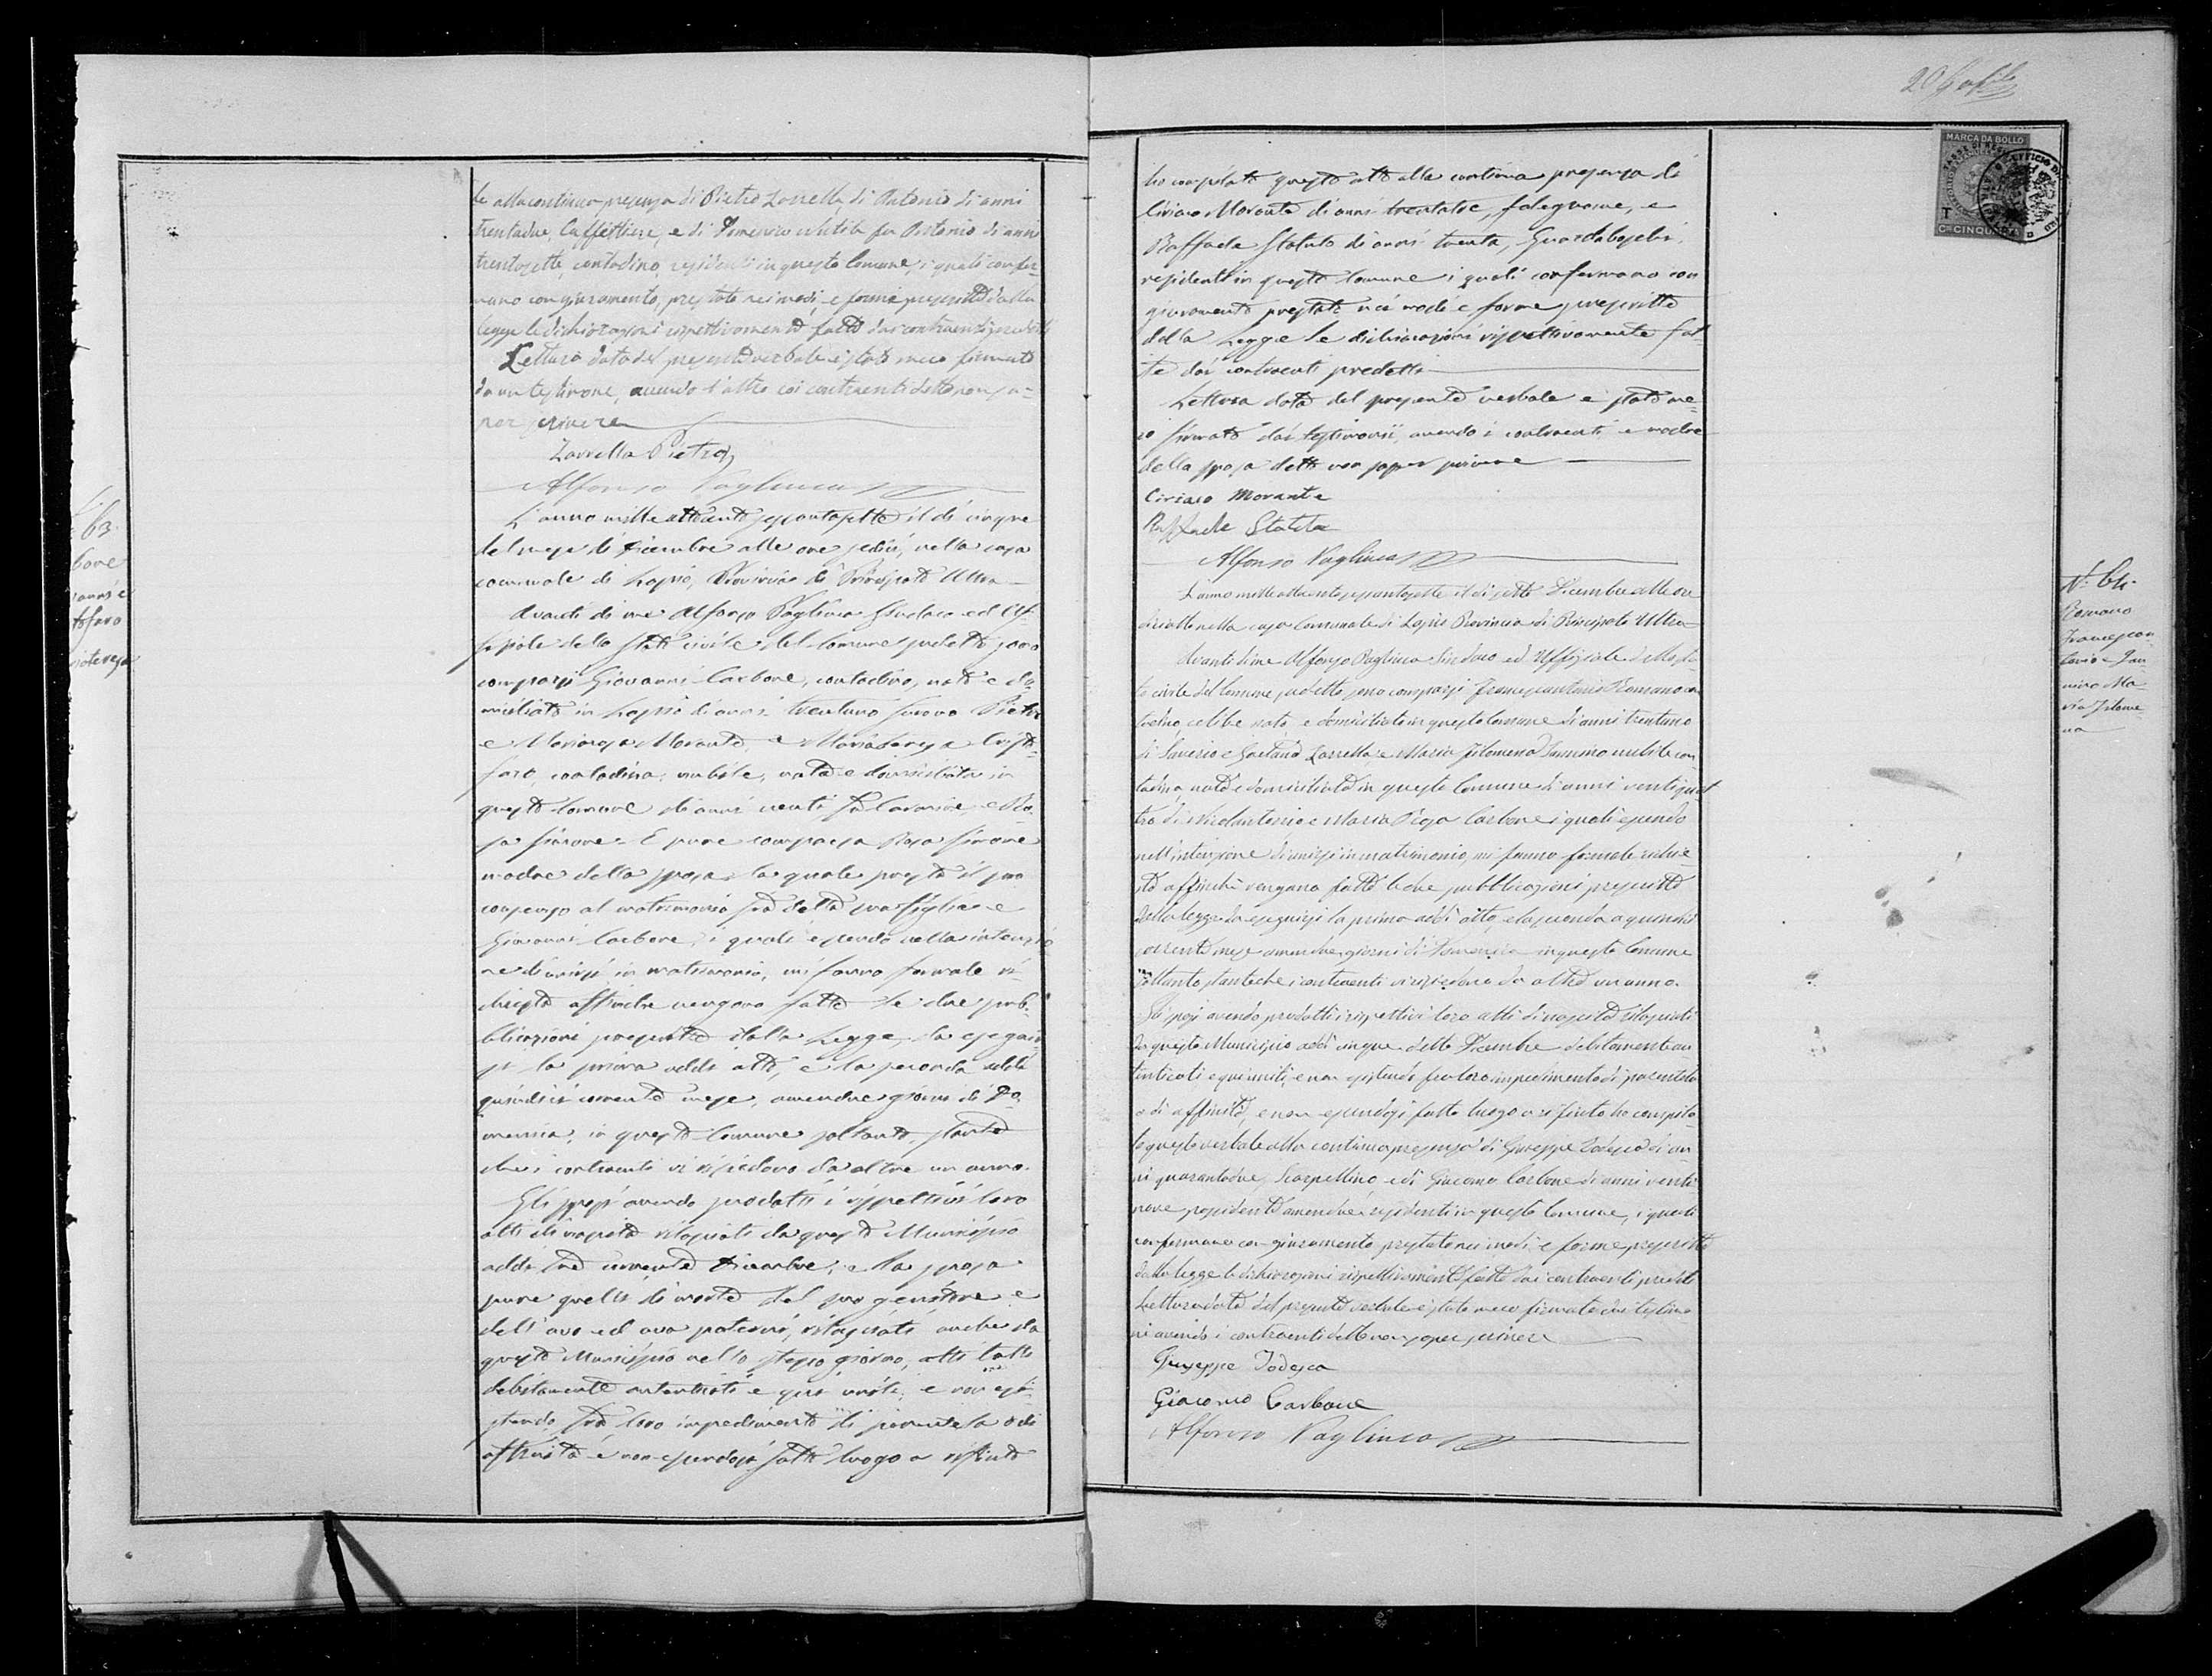 le alla continua presenza di Pietro Zarrella di Antonio di anni
trentadue, Caffettiere, e di Domenico fu Antonio di anni
trentasette, contadino, residenti in questo Comune, i quali confer-
mano con giuramento, prestato nei modi, e forme prescritte dalla
legge le dichiarazioni rispettivamente fatte dai contraenti predetti
Lettura data del presente verbale è stato meco firmato
da un testimone, avendo l'altro coi contraenti detto non sa-
per scrivere
Zarrella Pietro
Alfonso Pagliuca
63.
bone
anni e
tofaro
iateresa
L'anno milleottocento sessantasette il dì cinque
del mese di Dicembre alle ore sedici, nella casa
comunale di Lapio, Provincia di Principato Ultra
Avanti di me Alfonso Pagliuca Sindaco ed Uf-
fiziale dello Stato civile del Comune suddetto sono
comparsi Giovanni Carbone, contadino, nato e do-
miciliato in Lapio di anni trentuno furono Pietro
e Mariarosa Morante, e Mariateresa Cristo-
faro, contadina, nubile, nata e domiciliata in
questo Comune di anni venti fu e Ro-
sa Simone. E pure comparsa Rosa Simone
madre della sposa, la quale presta il suo
consenso al matrimonio fra detta sua figlia e
Giovanni Carbone, i quali essendo nella intenzio-
ne di unirsi in matrimonio, mi fanno formale ri-
chiesta affinche vengano fatte le due pub-
blicazioni prescritte dalla Legge da eseguir-
si la prima addi otto, e la seconda addi
quindici corrente mese, amendue giorni di Do-
menica, in questo Comune soltanto, stante
che i contraenti vi risiedono da oltre un anno.
Gli sposi avendo prodotti i rispettivi loro
atti di nascita rilasciati da questo Municipio
addi tre corrente Dicembre; e la sposa
pure quelli di morte del suo genitore e
dell'avo ed ava paterni, rilasciati anche da
questo Municipio nello stesso giorno, atti tutti
debitamente autenticati e qui uniti; e non esi-
stendo fra loro impedimento di parentela o di
affinità e non essendosi fatto luogo a rifiuto
ho compilato questo atto alla continua presenza di
Ciriaco Morante di anni trentatre, falegname, e
Raffaele Statuto di anni trenta, Guardaboschi,
residenti in questo Comune i quali confermano con
giuramento prestato nei modi e forme prescritte
dalla Legge le dichiarazioni rispettivamente fat-
te dai contraenti predetti
Lettura data del presente verbale è stato me-
co firmato dai testimonii, avendo i contraenti e madre
della sposa detto non saper scrivere
Ciriaco Morante
Raffaele
Alfonso Pagliuca
N. 64.
Romano
Francescan-
tonio e Ian-
nino Ma-
ria Filome-
na
L'anno milleottocentosessantasette il dì sette Dicembre alle ore
diciotto nella casa Comunale di Lapio Provincia di Principato Ultra
Avanti di me Alfonso Pagliuca Sindaco ed Uffiziale dello Sta-
to civile del Comune suddetto sono comparsi Francescantonio Romano con-
tadino, celibe nato e domiciliato in questo Comune di anni trentuno
di Saverio e Gaetana Zarrella e Maria Filomena Iannino nubile con-
tadina nata e domiciliata in questo Comune di anni ventiquat-
tro di Nicolantonio e Maria Rosa Carbone i quali essendo
nell'intenzione di unirsi in matrimonio, mi fanno formale richie-
sta affinchè vengano fatte le due pubblicazioni prescritte
dalla legge da eseguirsi la prima addi otto, e la seconda a quindici
corrente mese amendue giorni di Domenica in questo Comune
soltanto, stanteche i contraenti vi risiedono da oltre un anno.
Gli sposi avendo prodotti i rispettivi loro atti di nascita rilasciati
da questo Municipio addi cinque detto Dicembre debitamente au-
tenticati e qui uniti, e non esistendo fra loro impedimento di parentela
o di affinità, e non essendosi fatto luogo a rifiuto ho compila-
to questo verbale alla continua presenza di Giuseppe Todesca di an-
ni quarantadue, Scarpellino e di Giacomo Carbone di anni venti-
nove, possidente amendue residenti in questo Comune, i quali
confermano con giuramento prestato nei modi, e forme prescritte
dalla legge le dichiarazioni rispettivamente fatte dai contraenti predetti
Lettura data del presente verbale è stato meco firmato dai testimo-
ni avendo i contraenti detto non saper scrivere
Giuseppe Todesca
Giacomo Carbone
Alfonso Pagliuca
MARCA DA BOLLO
T
CI CINQUANTA